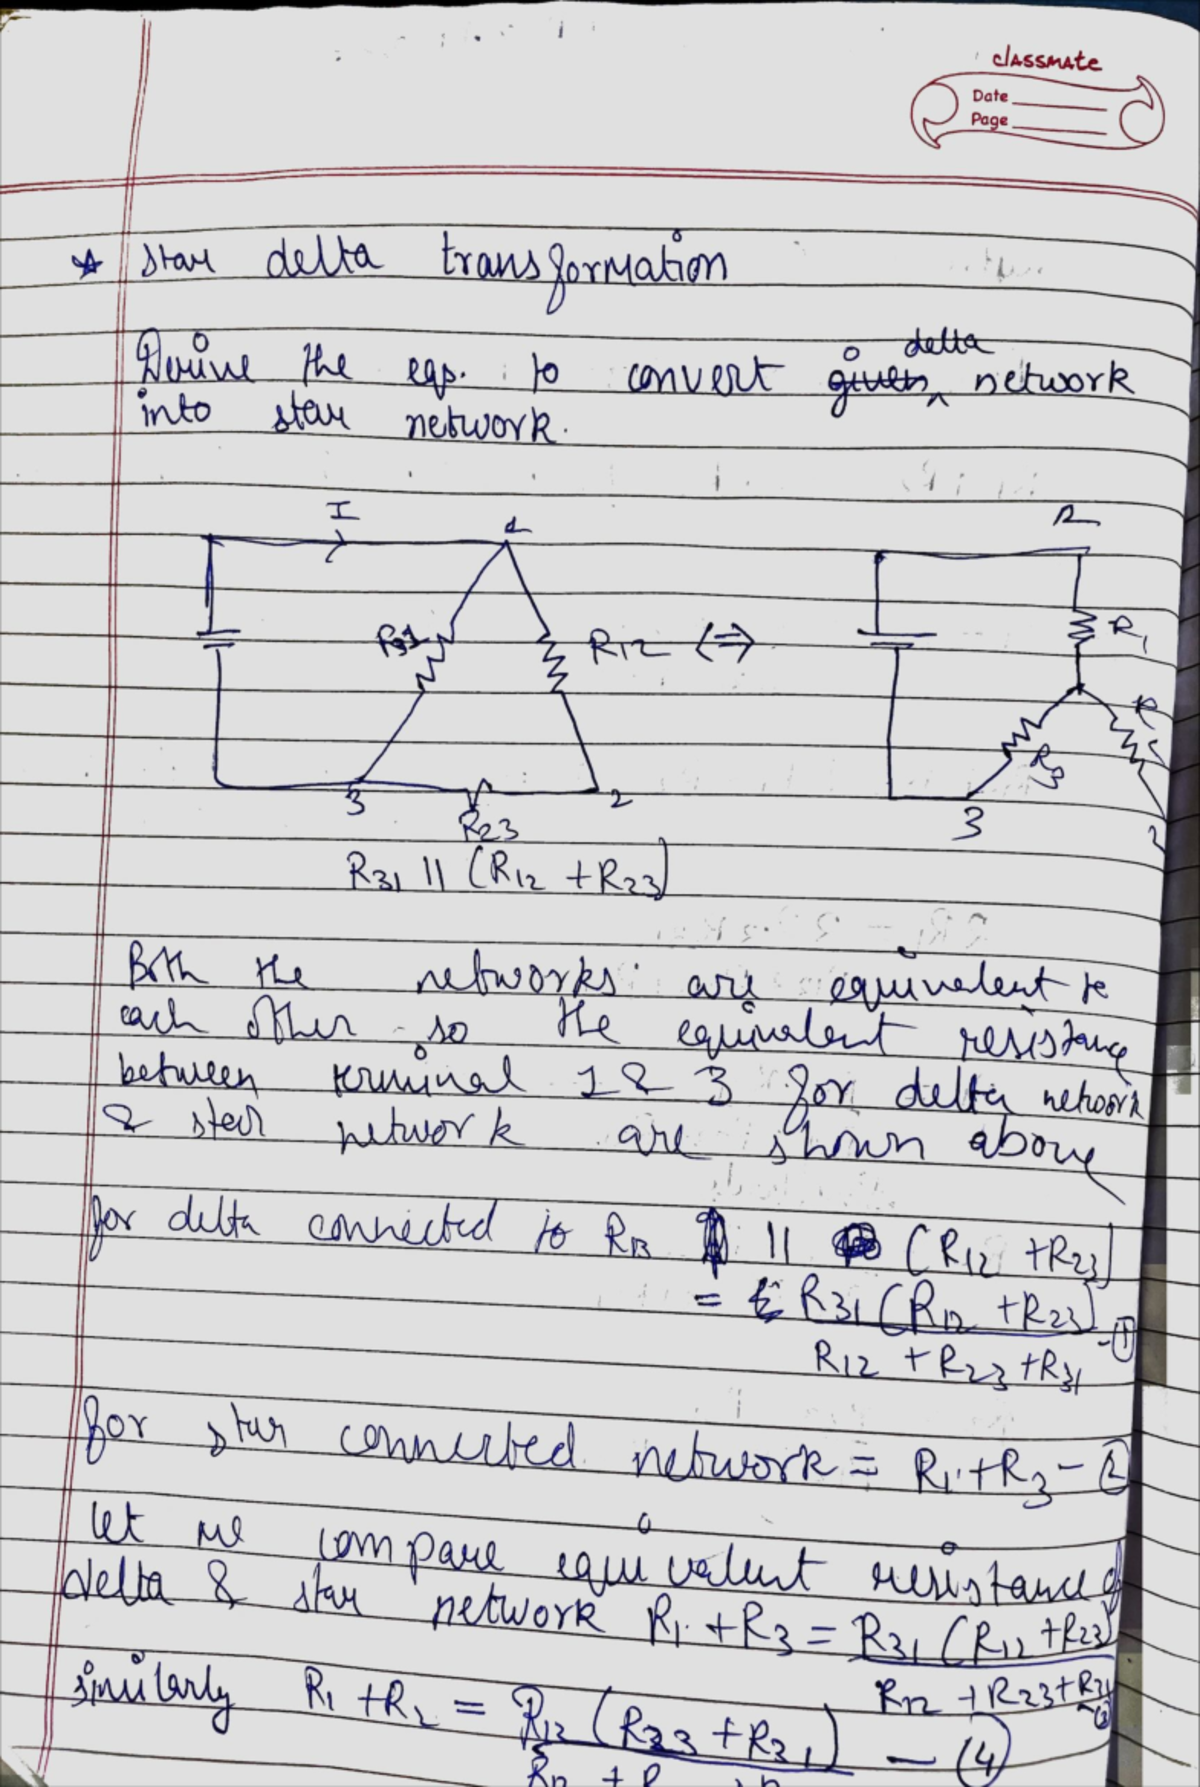 classmate
Date
Page
☆ star delta transformation
Derive the eqs. to convert given delta network
into star network.
I
1
R31
R12
⇔
3
R23
2
R1
R3
3
2
R31 || (R12 + R23)
Both the networks are equivalent to
each other so the equivalent resistance
between terminal 1 & 3 for delta network
& star network are shown above
for delta connected to R13 || (R12 + R23)
= R31 (R12 + R23) - ①
R12 + R23 + R31
for star connected network = R1 + R3 - ②
let we compare equivalent resistance of
delta & star network R1 + R3 = R31 (R12 + R23)
R12 + R23 + R31
similarly R1 + R2 = R12 (R23 + R31) - (4)